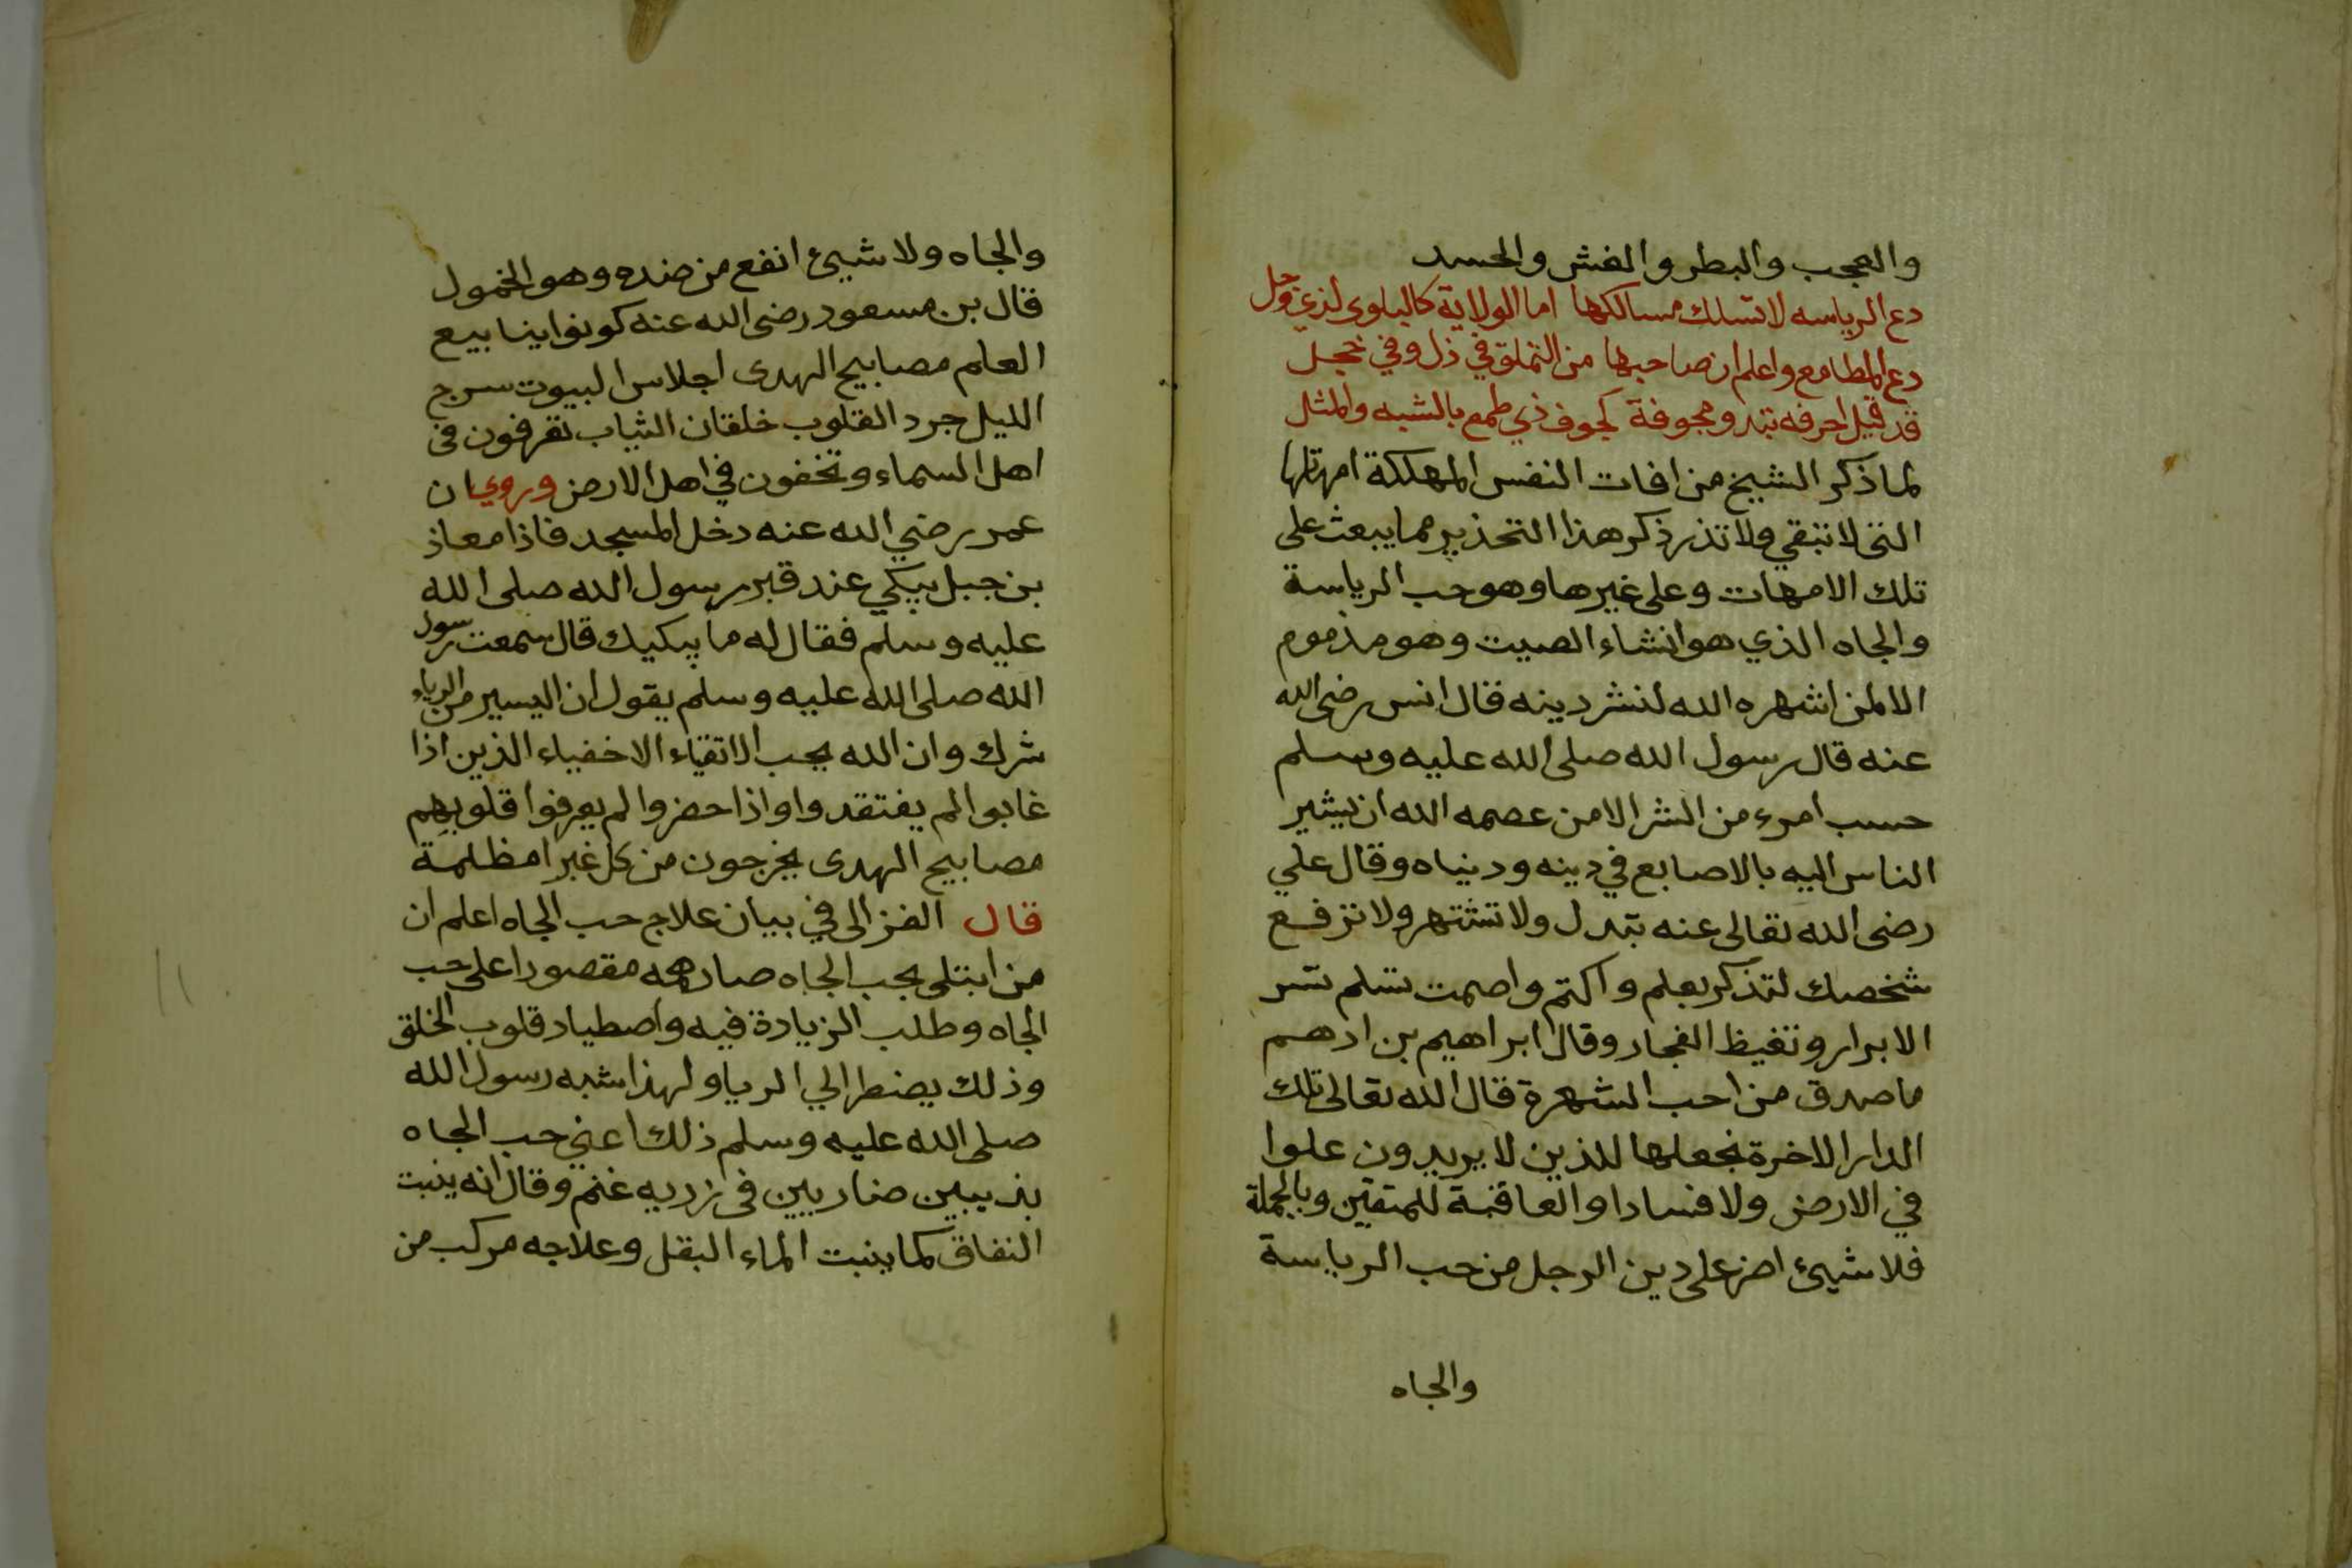 والعجب والبطر والغش والحسد
دع الرياسه لا تسلك مسالكها اما الولاية كالبلوى لذي وجل
دع المطامع واعلم ان صاحبها من التملق في ذل وفي خجل
قد قيل احرفه تبدو مجوفة كجوف ذي طمع بالشبه والمثل
لما ذكر الشيخ من افات النفس المهلكة امهاتها
التي لا تبقي ولا تذر ذكر هذا التحذير مما يبعث على
تلك الامهات وعلى غيرها وهو حب الرياسة
والجاه الذي هو انشاء الصيت وهو مذموم
الا لمن اشهره الله لنشر دينه فقال انس رضى الله
عنه قال رسول الله صلى الله عليه وسلم
حسب امرء من الشر الا من عصمه الله ان يشير
الناس اليه بالاصابع في دينه ودنياه وقال علي
رضى الله تعالى عنه تبدل ولا تشتهر ولا ترفع
شخصك لتذكر بعلم واكتم واصمت تسلم تسر
الابرار وتغيظ الفجار وقال ابراهيم بن ادهم
ما صدق من احب الشهرة قال الله تعالى تلك
الدار الاخرة نجعلها للذين لا يريدون علوا
في الارض ولا فسادا والعاقبة للمتقين وبالجملة
فلا شيئ اضر على دين الرجل من حب الرياسة
والجاه
والجاه ولا شيئ انفع من ضده وهو الخمول
قال بن مسعود رضى الله عنه كونوا ينابيع
العلم مصابيح الهدى اجلاس البيوت سرج
الليل جرد القلوب خلقان الثياب تعرفون في
اهل السماء وتخفون في اهل الارض وروي ان
عمر رضي الله عنه دخل المسجد فاذا معاذ
بن جبل يبكي عند قبر رسول الله صلى الله
عليه وسلم فقال له ما يبكيك قال سمعت رسول
الله صلى الله عليه وسلم يقول ان اليسير من الرياء
شرك وان الله يحب الاتقياء الاخفياء الذين اذا
غابوا لم يفتقدوا واذا حضروا لم يعرفوا قلوبهم
مصابيح الهدى يخرجون من كل غبرا مظلمة
قال الغزالى في بيان علاج حب الجاه اعلم ان
من ابتلى بحب الجاه صار همه مقصورا على حب
الجاه وطلب الزيادة فيه واصطياد قلوب الخلق
وذلك يضطر الي الريا ولهذا شبه رسول الله
صلى الله عليه وسلم ذلك اعني حب الجاه
بذيبين ضاريين في زريبه غنم وقال انه ينبت
النفاق كما ينبت الماء البقل وعلاجه مركب من